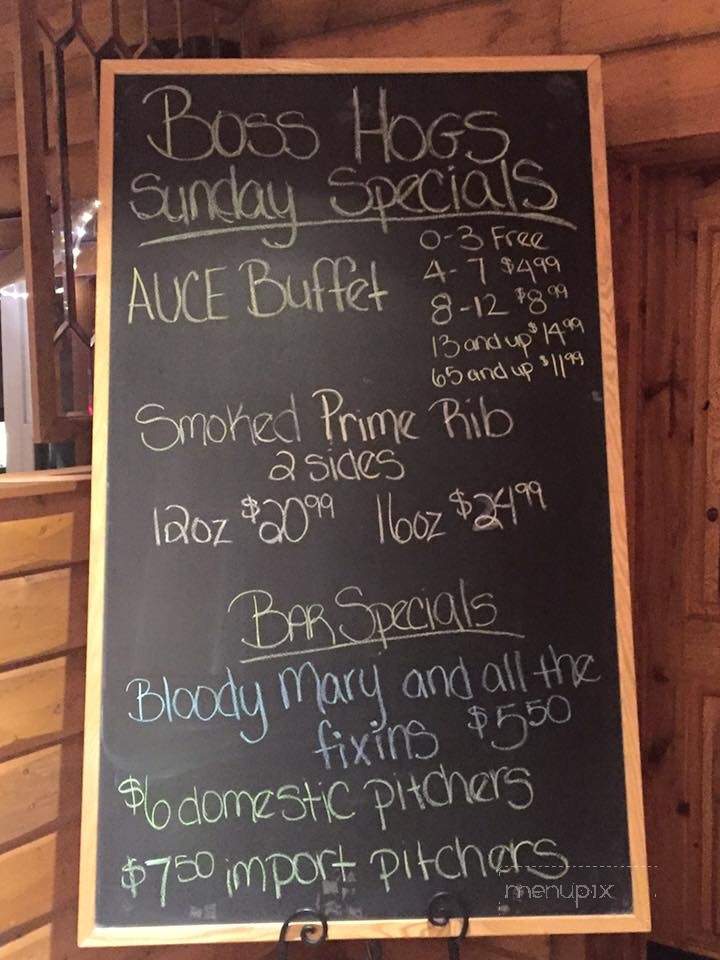 Boss Hogs
Sunday Specials
AUCE Buffet
0-3 Free
4-7 $4.99
8-12 $8.99
13 and up $14.99
65 and up $11.99
Smoked Prime Rib
2 sides
12oz $20.99 16oz $24.99
Bar Specials
Bloody Mary and all the
fixins $5.50
$6 domestic pitchers
$7.50 import pitchers
menupix